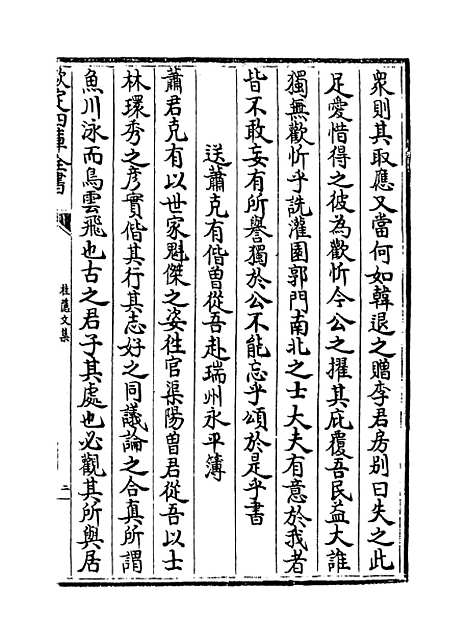 衆則其取應又當何如韓退之贈李君房别曰失之此
足愛惜得之彼為歡忻今公之擢其庇覆吾民益大誰
獨無歡忻乎詵灌園郭門南北之士大夫有意於我者
皆不敢妄有所譽獨於公不能忘乎頌於是乎書
送蕭克有偕曾從吾赴瑞州永平簿
蕭君克有以世家魁傑之姿徃官渠陽曽君從吾以士
林環秀之彦實偕其行其志好之同議論之合真所謂
魚川泳而鳥雲飛也古之君子其處也必觀其所與居
欽定四庫全書
桂隱文集
二